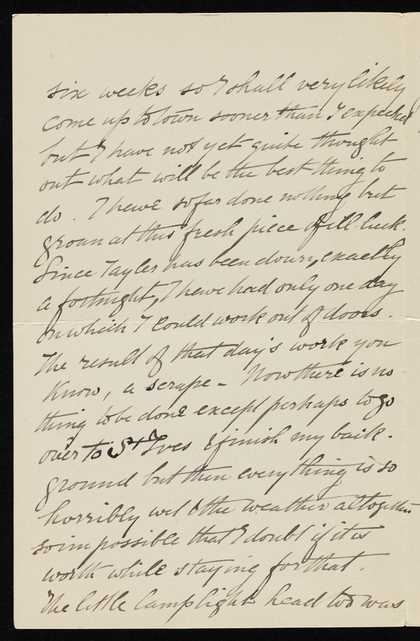 six weeks so I shall very likely
come up to town sooner than I expected
but I have not yet quite thought
out what will be the best thing to
do. I have so far done nothing but
groan at this fresh piece of ill-luck.
Since Tayler has been down, exactly
a fortnight, I have had only one day
on which I could work out of doors.
The result of that day's work you
know, a scrape - Now there is no
thing to be done except perhaps to go
over to St Ives & finish my back-
ground but then everything is so
horribly wet & the weather altogether
so impossible that I doubt if it is
worth while staying for that.
The little lamplight head too was